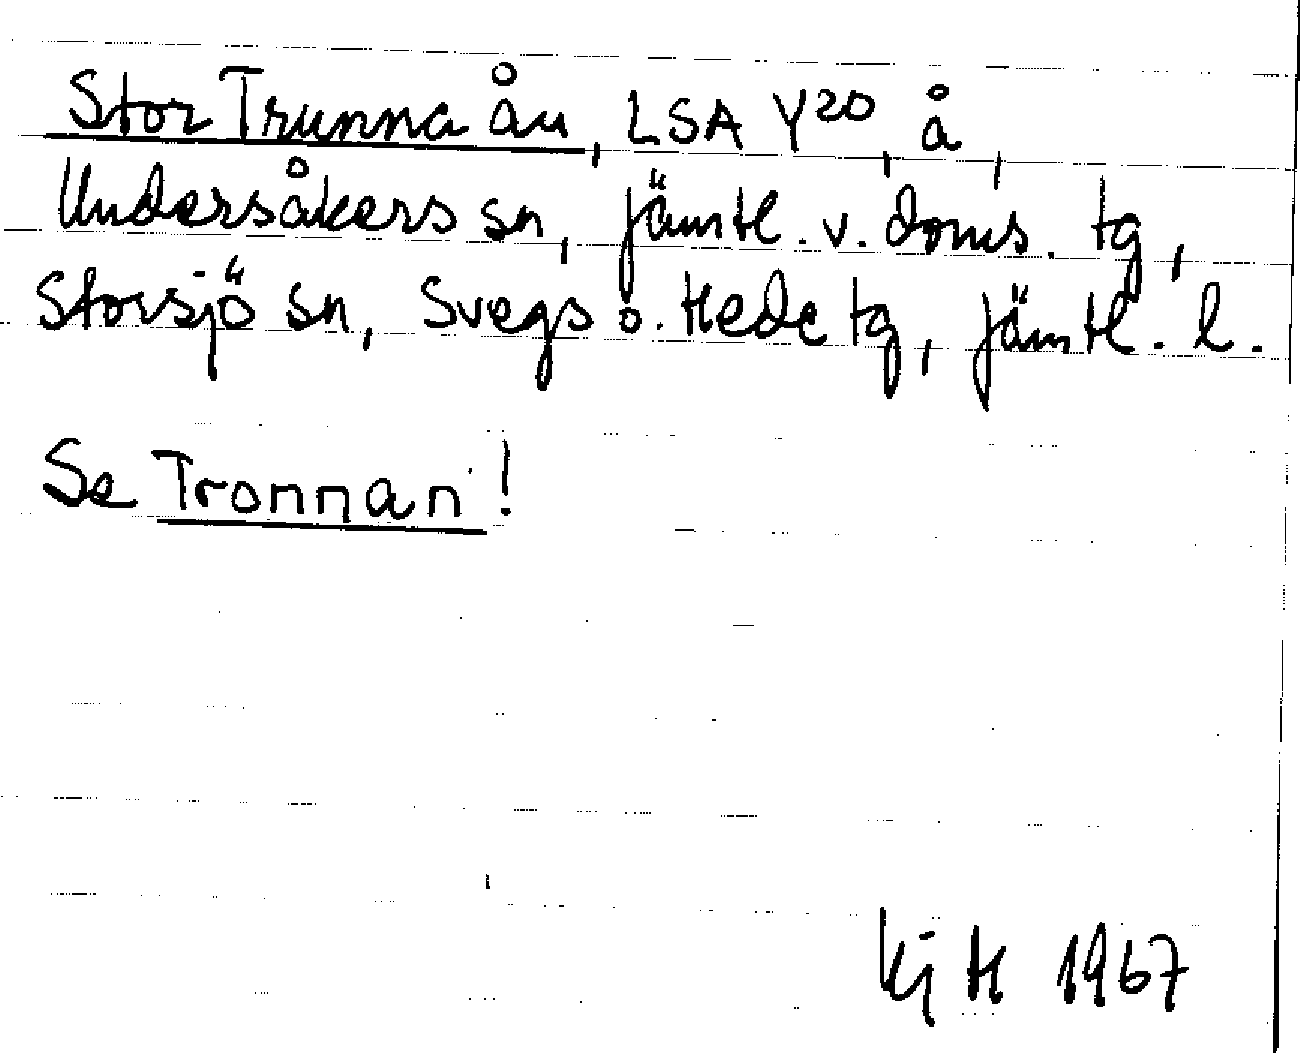 Stor Trunna ån, LSA Y20, å,
Undersåkers sn, Jämtl. v. doms. tg,
Storsjö sn, Svegs o. Hede tg, Jämtl. l.
Se Tronnan!
Kj H 1967